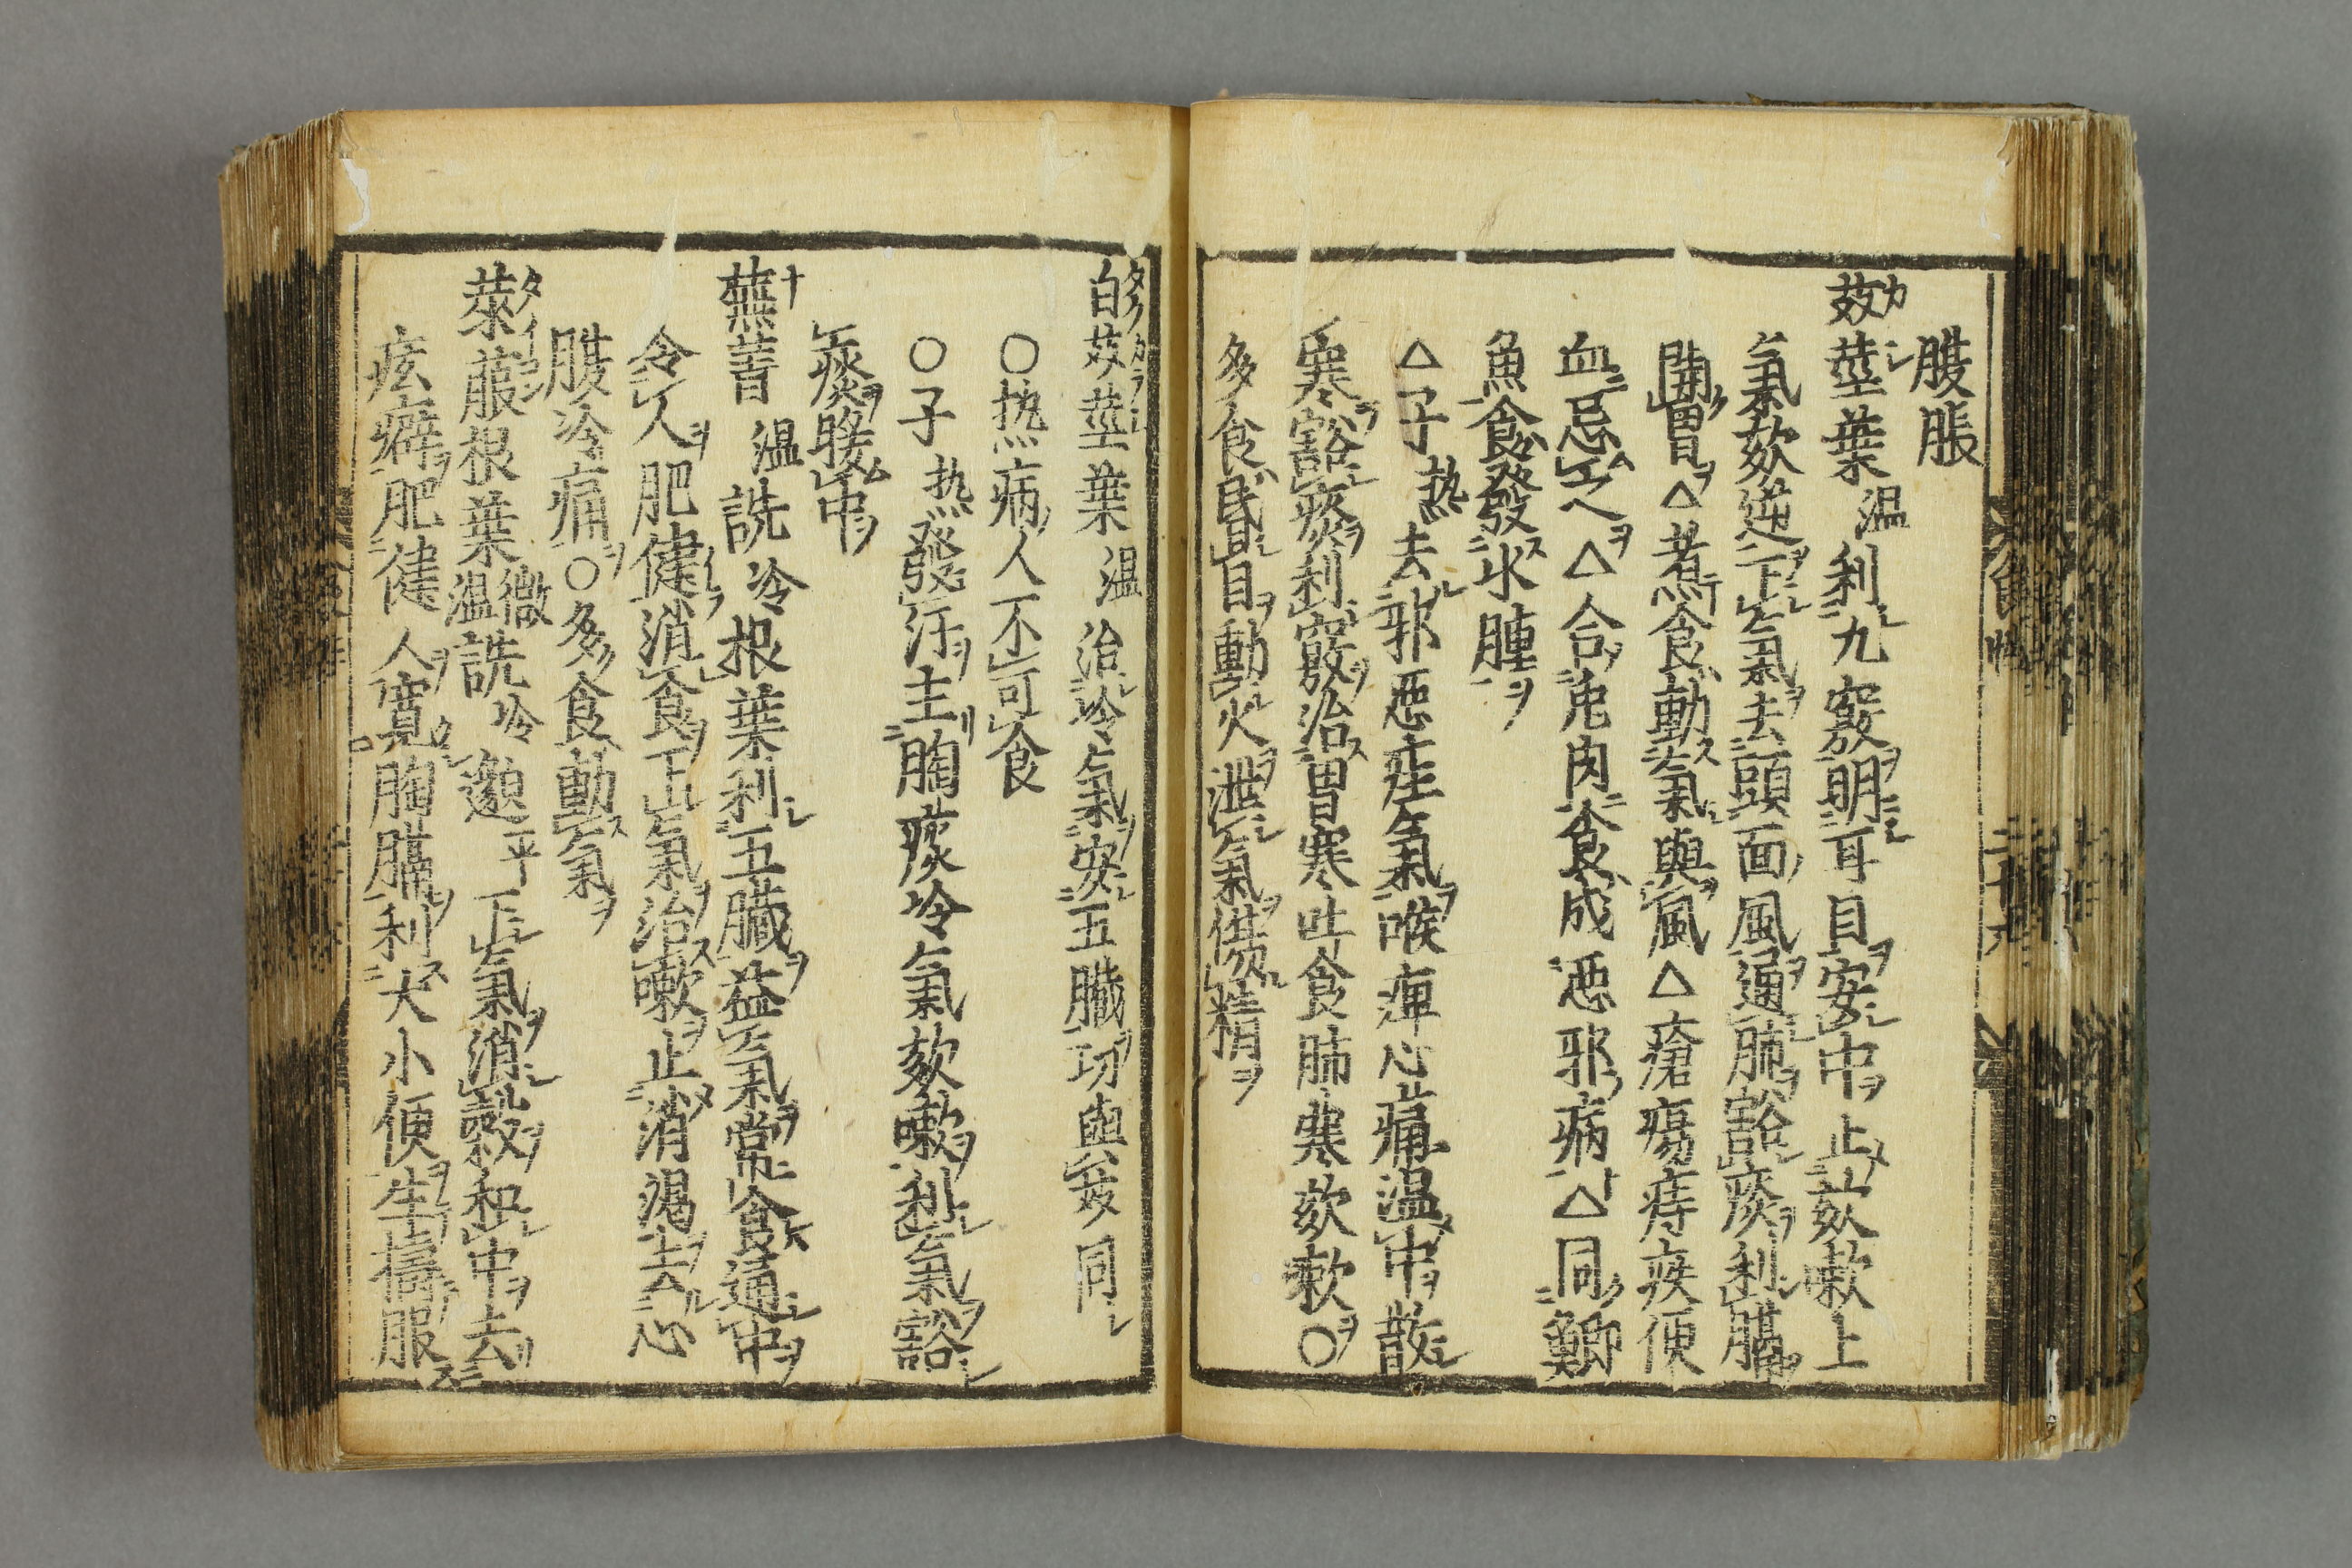 腹脹
芥莖葉 温 利九竅明耳目安中止欬嗽上
氣欬逆下氣去頭面風通肺豁痰利膈
開胃△煮食動氣與風△瘡瘍痔疾便
血忌之△合兎肉食成惡邪病△同鯽
魚食發水腫
△子 热 去邪惡疰氣喉痺心痛温中散
寒豁痰利竅治胃寒吐食肺寒欬嗽○
多食昏目動火泄氣傷精
白芥莖葉 温 治冷氣安五臓功與芥同
○热病人不可食
○子 热 發汗主胸痰冷氣欬嗽利氣豁
痰暖中
蕪菁 温 詵冷根葉利五臓益氣常食通中
令人肥健消食下氣治嗽止消渇去心
腹冷痛○多食動氣
萊菔根葉 微温 詵冷 邈平 下氣消穀和中去
痃癖肥健人寛胸膈利大小便生擣服
二十九